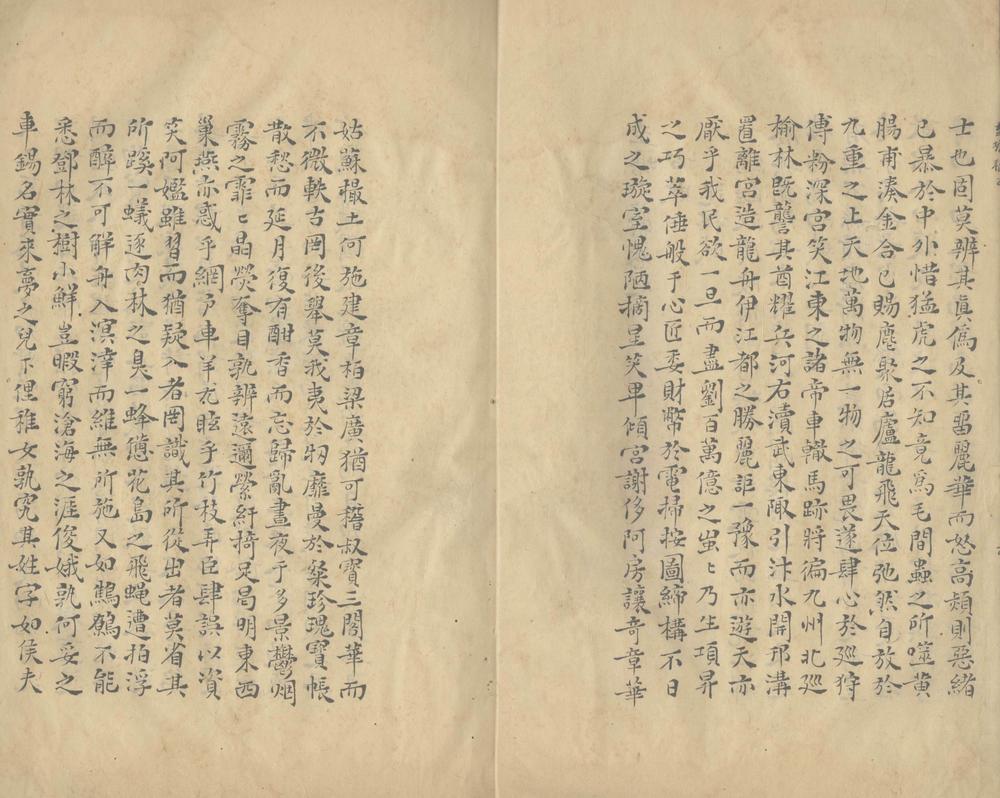 士也固莫辨其真僞及其畱麗華而怒高熲則惡緒
已暴於中外惜猛虎之不知竟爲毛間蟲之所噬黄
腸甫湊金合已賜麀聚居廬龍飛天位弛然自放於
九重之上天地萬物無一物之可畏遂肆心於廵狩
傅粉深宮笑江東之諸帝車轍馬跡將徧九州北廵
榆林既讋其酋耀兵河右瀆武東陬引汴水開邗溝
置離宮造龍舟伊江都之勝麗詎一豫而亦遊天亦
厭乎我民欲一旦而盡劉百萬億之蚩〻乃生項昇
之巧萃倕般于心匠委財幣於電掃按圖締構不日
成之璇室愧陋摘星笑卑傾宮謝侈阿房讓竒章華
姑蘇撮土何施建章柏梁廣猶可稽叔寶三閣華而
不微軼古罔後舉莫我夷於牣靡曼於粲珍瑰寶帳
散愁而延月復有酣香而忘歸亂晝夜于多景鬱烟
霧之霏〻晶熒奪目孰辨遠邇縈紆掎足曷明東西
巢燕亦惑乎網户車羊尤眩乎竹枝弄臣肆誤以資
笑阿㜝雖習而猶疑入者罔識其所從出者莫省其
所蹊一蟻逐肉林之臭一蜂憊花島之飛蝿遭拍浮
而醉不可解舟入溟涬而維無所施又如鷦鷯不能
悉鄧林之樹小鮮豈暇窮滄海之涯俊娥孰何妥之
車錫名實來夢之兒下俚稚女孰究其姓字如侯夫